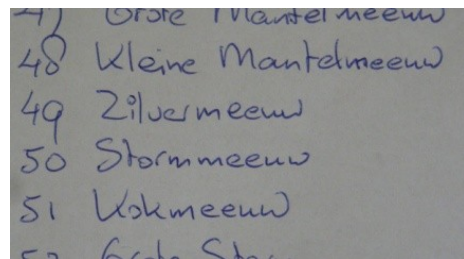 47 Grote Mantelmeeuw
48 Kleine Mantelmeeuw
49 Zilvermeeuw
50 Stormmeeuw
51 Kokmeeuw
52 Grote